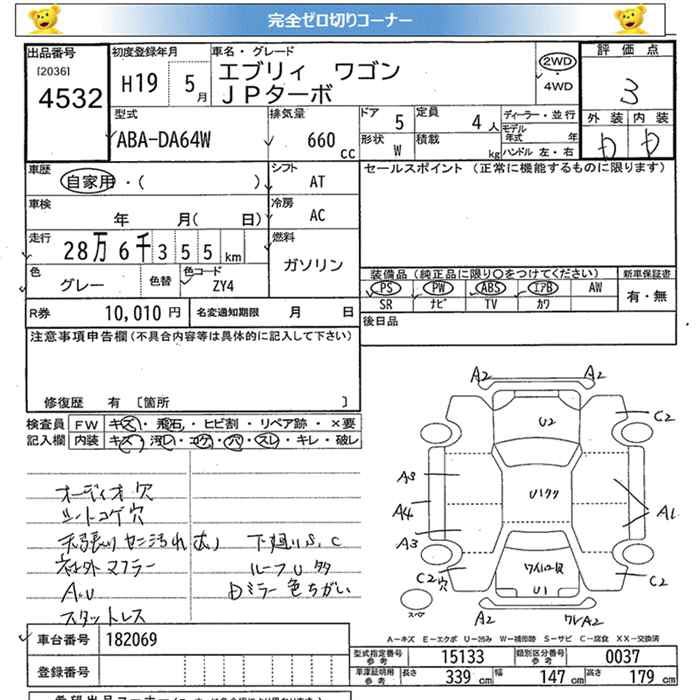 完全ゼロ切りコーナー
出品番号
[2036]
4532
初度登録年月
H19 5月
車名・グレード
エブリィ ワゴン
JPターボ
2WD
・
4WD
評価点
3
外装 内装
D D
型式
ABA-DA64W
排気量
660 cc
ドア 5
定員 4人
形状 W
積載 kg
ディーラー・並行
モデル年式 年
ハンドル 左・右
車歴
自家用・( )
シフト
AT
セールスポイント (正常に機能するものに限ります)
車検
年 月( 日)
冷房
AC
走行
28万6千355km
燃料
ガソリン
色
グレー
色替
色コード
ZY4
装備品(純正品に限り○をつけてください)
新車保証書
PS PW ABS エアB AW
SR ナビ TV カワ
有・無
R券 10,010円
名変通知期限 月 日
後日品
注意事項申告欄(不具合内容等は具体的に記入して下さい)
修復歴 有 [箇所 ]
検査員 FW キズ・飛石・ヒビ割・リペア跡・×要
記入欄 内装 キズ・汚レ・コゲ・穴・スレ・キレ・破レ
オーディオ穴
シートコゲ穴
天張り セン汚れ あり
社外マフラー
A.U
スタットレス
下廻りS,C
ルーフU 多
Dミラー色ちがい
A2 A2
U2
C2
A3
U1多々
A4
A1
A3
ワイパー傷
C2穴
U1
C2
スペア
A2
ワレA2
A-キズ E-エクボ U-凹み W-補修跡 S-サビ C-腐食 XX-交換済
車台番号 182069
登録番号
型式指定番号 参考 15133
類別区分番号 参考 0037
車庫証明用 参考 長さ 339 cm 幅 147 cm 高さ 179 cm